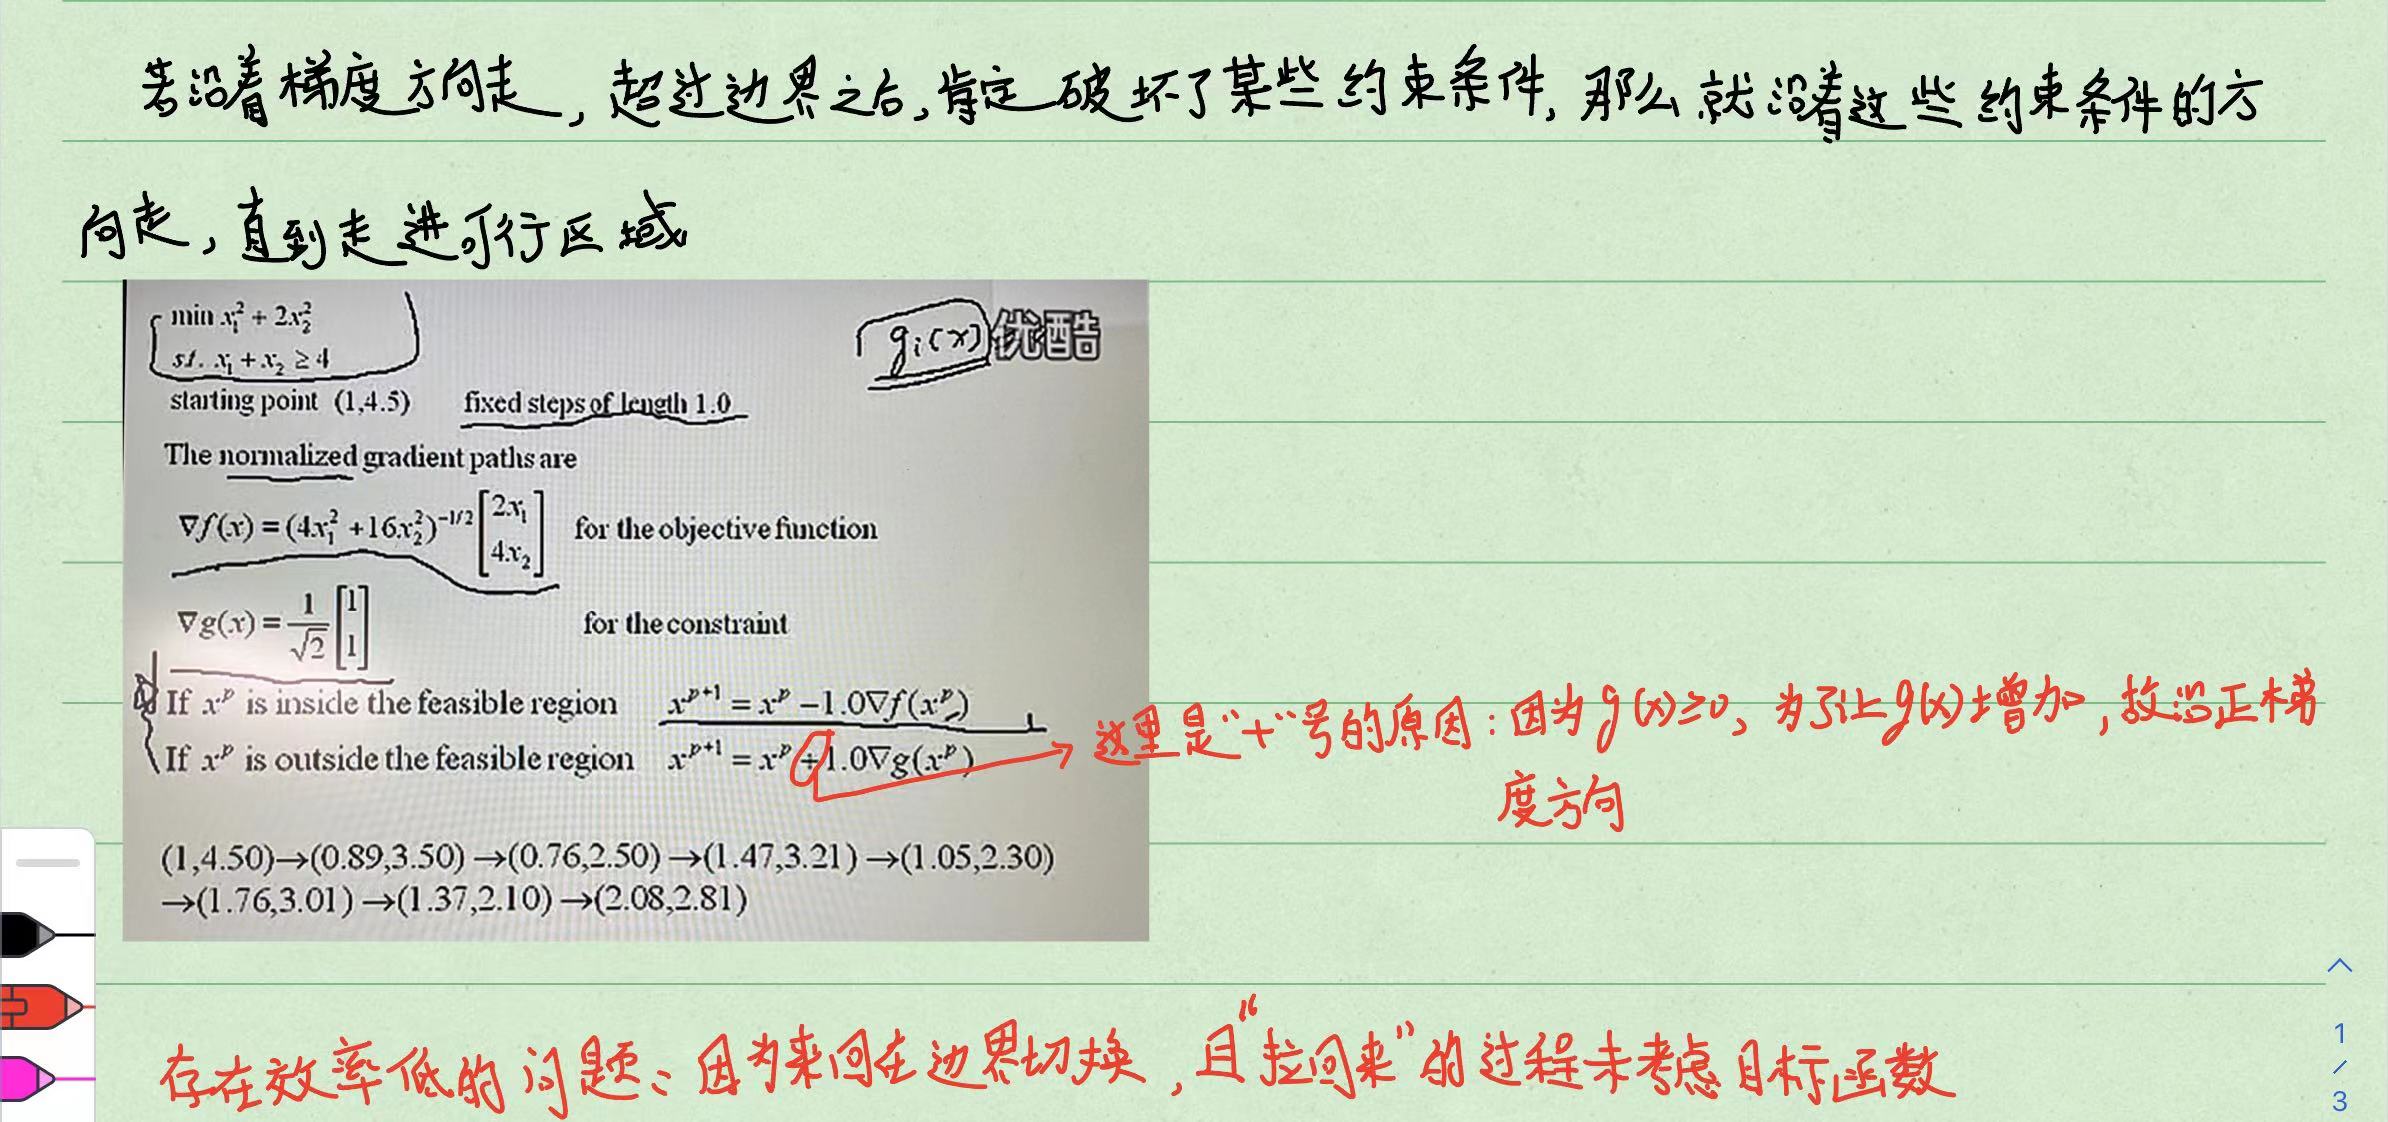 若沿着梯度方向走，超过边界之后，肯定破坏了某些约束条件，那么就沿着这些约束条件的方
向走，直到走进可行区域
min x₁² + 2x₂²
s.t. x₁ + x₂ ≥ 4
gᵢ(x)
优酷
starting point (1,4.5) fixed steps of length 1.0
The normalized gradient paths are
∇f(x) = (4x₁² +16x₂²)^(-1/2) [2x₁ 4x₂] for the objective function
∇g(x) = 1/√2 [1 1] for the constraint
If xᵖ is inside the feasible region xᵖ⁺¹ = xᵖ −1.0∇f(xᵖ)
If xᵖ is outside the feasible region xᵖ⁺¹ = xᵖ +1.0∇g(xᵖ)
这里是“+”号的原因：因为g(x)≥0，为了让g(x)增加，故沿正梯
度方向
(1,4.50)→(0.89,3.50) →(0.76,2.50) →(1.47,3.21) →(1.05,2.30)
→(1.76,3.01) →(1.37,2.10) →(2.08,2.81)
存在效率低的问题：因为来回在边界切换，且“拉回来”的过程未考虑目标函数
1
/
3